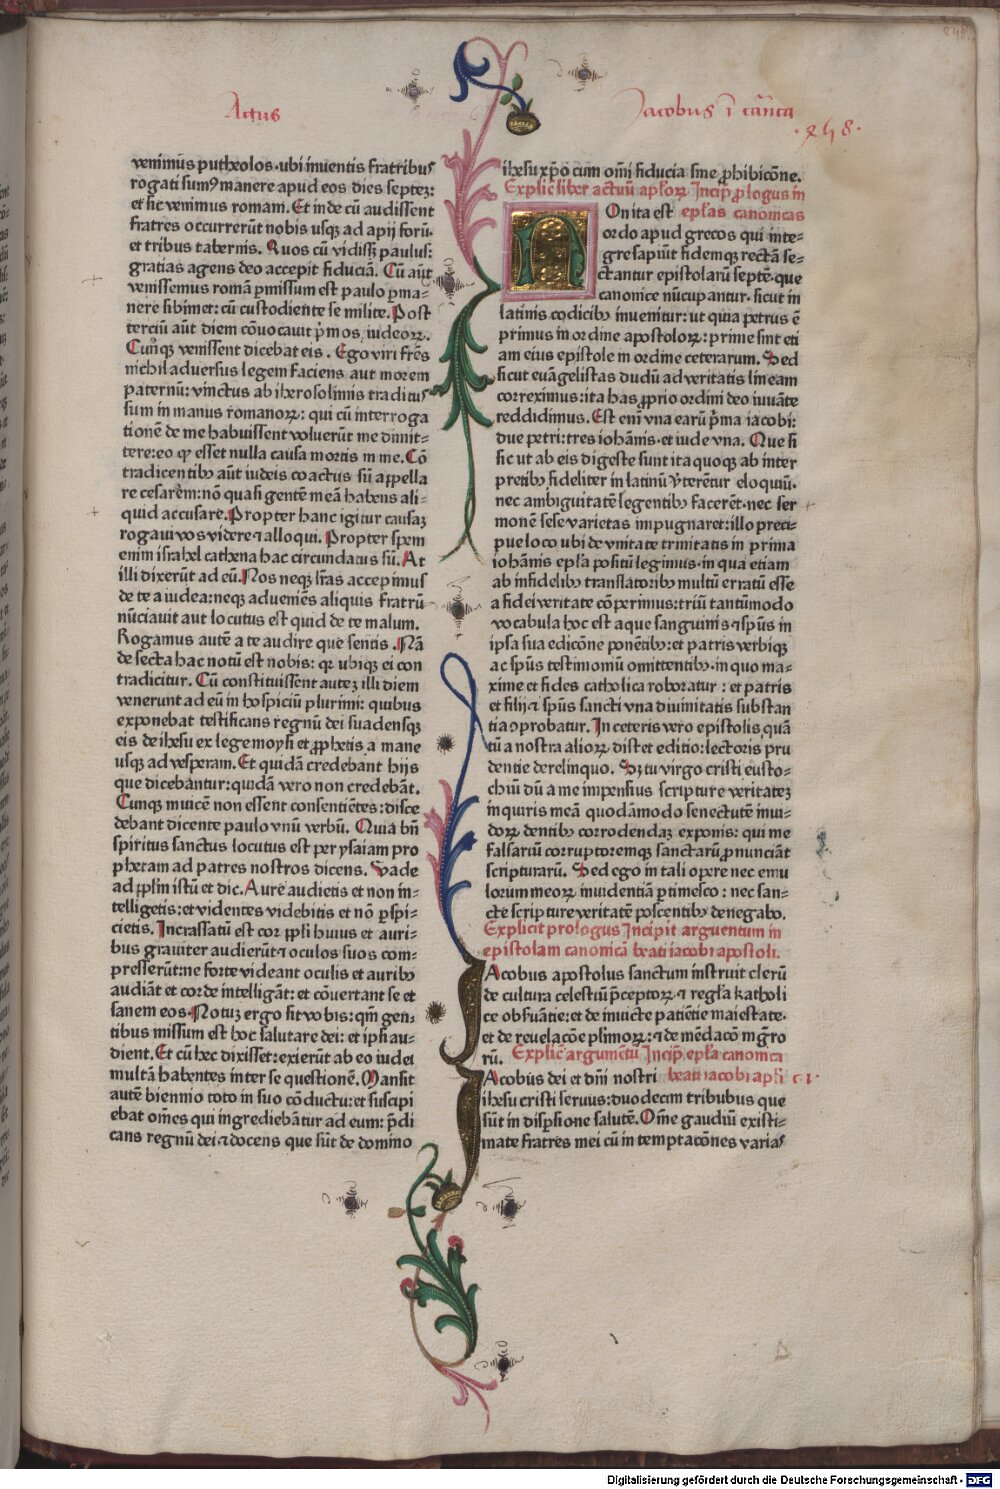 Actus
Jacobus ī canīca
·248·
venimus putheolos·ubi inuentis frattibus
rogati sumꝰ manere apud eos dies septeʒ:
et sic venimus romam. Et inde cū audissent
fratres occurrerūt nobis usqʒ ad apij forū·
et tribus tabernis. Quos cū vidissʒ paulus:
gratias agens deo accepit fiduciā. Cū aūt
venissemus romā ꝑmissum est paulo ꝑma=
nere sibimet: cū custodiente se milite. Post
terciū aūt diem cōuocauit p̄mos iudeoꝝ.
Cūqʒ venissent dicebat eis. Ego viri frēs
nichil aduersus legem faciens aut morem
paternū: vinctus ab iherosolimis traditus
sum in manus romanoꝝ: qui cū interroga
tionē de me habuissent voluerūt me dimit=
tere: eo ꝙ esset nulla causa mortis in me. Cō
tradicentibꝰ aūt iudeis coactus sū appella
re cesarem: nō quasi gentē meā habens ali=
quid accusare. Propter hanc igitur causaʒ
rogaui vos videre ⁊ alloqui. Propter spem
enim israhel cathena hac circundatus sū. At
illi dixerūt ad eū. Nos neqʒ lr̄as accepimus
de te a iudea: neqʒ adueniēs aliquis fratrū
nūciauit aut locutus est quid de te malum.
Rogamus autē a te audire que sentis. Nā
de secta hac notū est nobis: qꝛ ubiqʒ ei con
tradicitur. Cū constituissent auteʒ illi diem
venerunt ad eū in hospiciū plurimi: quibus
exponebat testificans regnū dei suadensqʒ
eis de ihesu ex lege moysi et ꝓphetis a mane
usqʒ ad vesperam. Et quidā credebant hijs
que dicebantur: quidā vero non credebāt.
Cunqʒ inuicē non essent consentiētes: disce
debant dicente paulo vnū verbū. Quia bn̄
spiritus sanctus locutus est per ysaiam pro
phetam ad patres nostros dicens. Vade
ad ppl̄m istū et dic. Aure audietis et non in=
telligetis: et videntes videbitis et nō ꝑspi=
cietis. Incrassatū est cor ppl̄i huius et auri=
bus grauiter audierūt ⁊ oculos suos com=
presserūt: ne forte videant oculis et auribꝰ
audiāt et corde intelligāt: et cōuertant se et
sanem eos. Notuʒ ergo sit vobis: qm̄ gen=
tibus missum est hoc salutare dei: et ipsi au=
dient. Et cū hec dixisset: exierūt ab eo iudei
multā habentes inter se questionē. Mansit
autē biennio toto in suo cōductu: et suscipi
ebat om̄es qui ingrediebātur ad eum: p̄di
cans regnū dei ⁊ docens que sūt de domino
ihesu xp̄o cum om̄i fiducia sine ꝓhibicōne.
Explic̄ liber actuū apl̄oꝝ Incip̄ ꝓlogus in
ep̄las canonicas
Non ita est
ordo apud grecos qui inte=
gre sapiūt fidemqʒ rectā se=
ctantur epistolarū septē·que
canonice nūcupantur·sicut in
latinis codicibꝰ inuenitur: ut quia petrus ē
primus in ordine apostoloꝝ: prime sint eti
am eius epistole in ordine ceterarum. Sed
sicut euāgelistas dudū ad veritatis lineam
correximus: ita has ꝓprio ordini deo iuuāte
reddidimus. Est eni̅ vna earū p̄ma iacobi:
due petri: tres iohānis·et iude vna. Que si
sicut ab eis digeste sunt ita quoqʒ ab inter
pretibꝰ fideliter in latinū v̄terētur eloquiū·
nec ambiguitatē legentibꝰ facerēt·nec ser
monē sese varietas impugnaret: illo preci=
pue loco ubi de vnitate trinitatis in prima
iohānis ep̄la positū legimus·in qua etiam
ab infidelibꝰ translatoribꝰ multū erratū esse
a fidei veritate cōperimus: triū tantūmodo
vocabula hoc est aque sanguinis ⁊ sp̄us in
ipsa sua edicōne ponētibꝰ: et patris verbiqʒ
ac sp̄us testimoniū omittentibꝰ·in quo ma=
xime et fides catholica roboratur: et patris
et filij ⁊ sp̄us sancti vna diuinitatis substan
tia ꝯprobatur. In ceteris vero epistolis quā
tū a nostra alioꝝ distet editio: lectoris pru
dentie derelinquo. Sʒ tu virgo cristi eusto=
chiū dū a me impensius scripture veritateʒ
inquiris meā quodāmodo senectutē inui=
doꝝ dentibꝰ corrodendaʒ exponis: qui me
falsariū corruptoremqʒ sanctarū ꝓnunciāt
scripturarū. Sed ego in tali opere nec emu
lorum meoꝝ inuidentiā ꝑtimesco: nec san=
cte scripture veritatē poscentibꝰ denegabo.
Explicit prologus Incipit arguentum in
epistolam canonicā beati iacobi apostoli.
Jacobus apostolus sanctum instruit clerū
de cultura celestiū p̄ceptoꝝ ⁊ regl̄a katholi
ce obſuātie: et de inuicte patiētie maiestate·
et de reuelacōe pl̄imoꝝ: ⁊ de mēdacō mgr̄o
rū. Explic̄ argumētū Incip̄ ep̄la canonica
beati iacobi apl̄i c̄ ·I·
Jacobus dei et dn̄i nostri
ihesu cristi seruus: duodecim tribubus que
sūt in disꝑsione salutē. Om̄e gaudiū existi=
mate fratres mei cū in temptacōnes varias
Digitalisierung gefördert durch die Deutsche Forschungsgemeinschaft - DFG